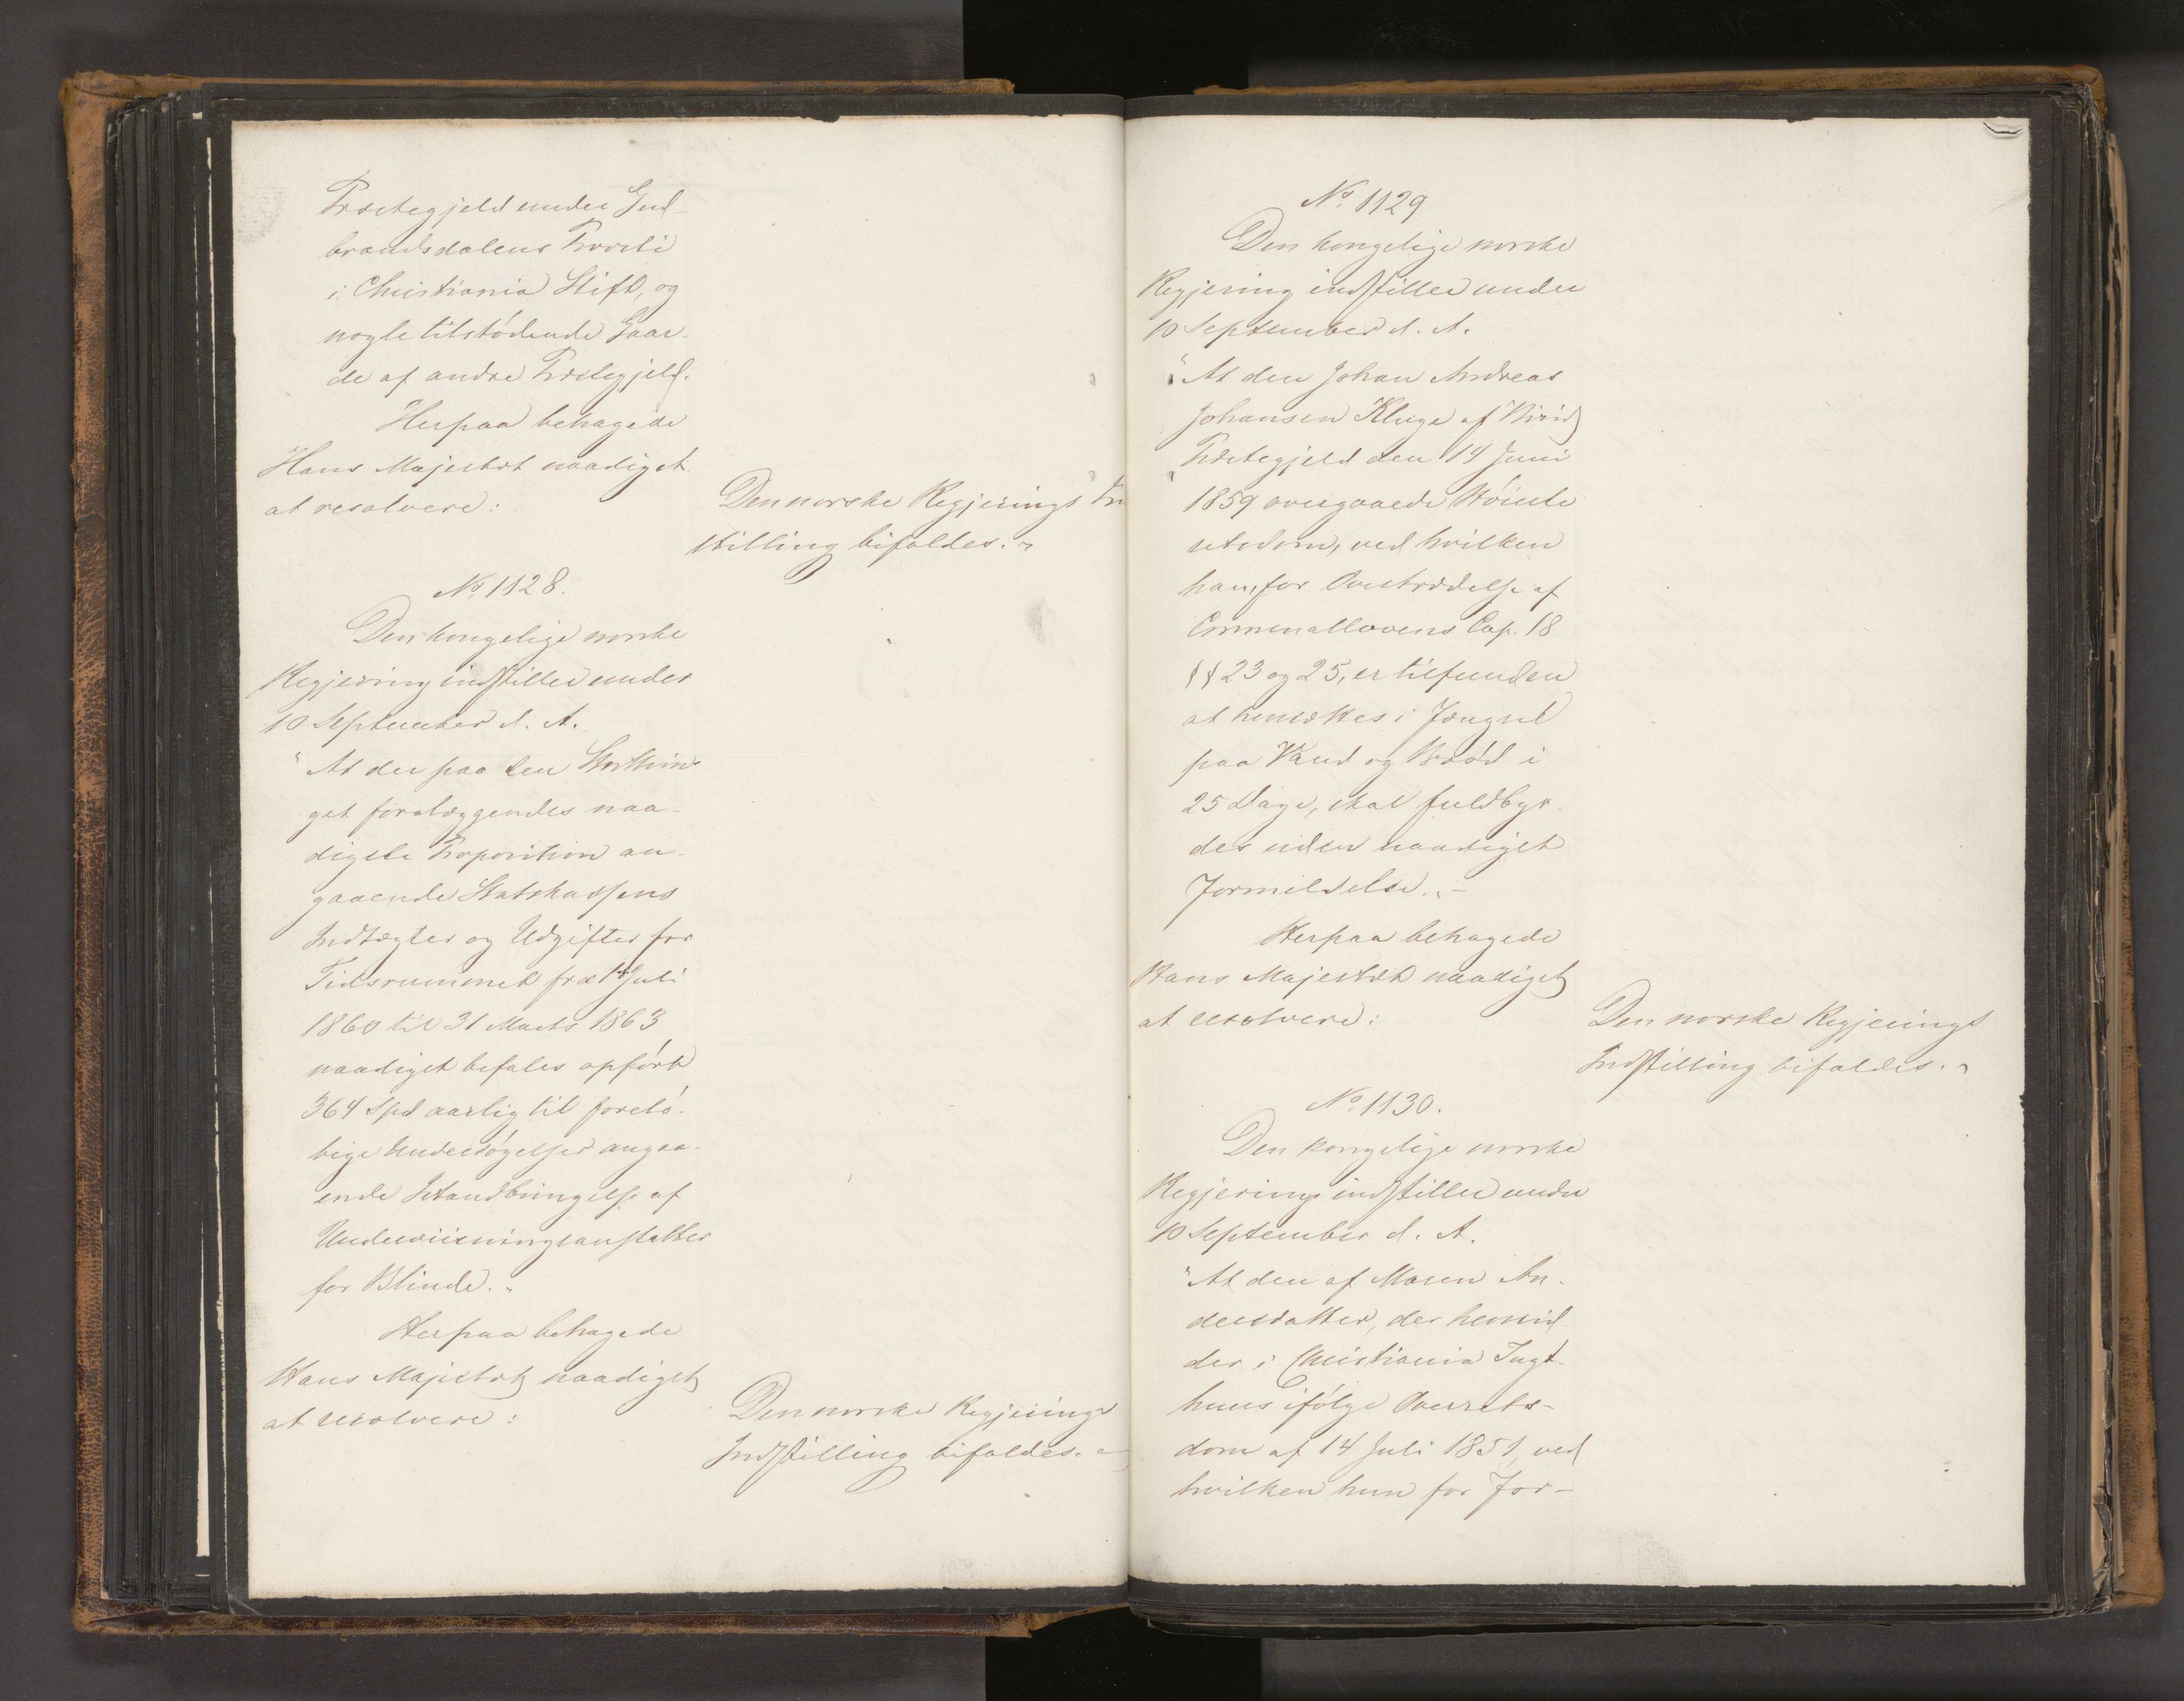 Præstegjeld under Gud-
brandsdalens Provsti
i Christiania Stift, og
nogle tilstødende Gaar-
de af andre Præstegjeld.
Herpaa behagede
Hans Majestæt naadigst
at resolvere:
Den norske Regjerings In
stilling bifaldes."
No 1128.
Den kongelige norske
Regjering indstiller under
10 September d. A.
"At der paa den Storthin-
get forelæggendes naa-
digste Proposition an-
gaaende Statskassens
Indtægter og Udgifter for
Tidsrummet fra 1 Juli
1860 til 31 Marts 1863
naadigst befales opført
364 Spd aarlig til forelø-
bige Undersøgelser angaa-
ende Istandbringelse af
Underviisningsanstalter
for Blinde."
Herpaa behagede
Hans Majestæt naadigst
at resolvere:
Den norske Regjerings
Indstilling bifaldes."
No 1129
Den kongelige norske
Regjering indstiller under
10 September d. A.
"At den Johan Andreas
Johansen Kluge af Birid
Præstegjeld den 14 Juni
1859 overgaaede Høieste
retsdom, ved hvilken
han, for Overtrædelse af
Criminallovens Cap. 18
§§ 23 og 25, er tilfunden
at hensættes i Fængsel
paa Vand og Brød i
25 Dage, skal fuldbyr-
des uden naadigst
Formildelse."
Herpaa behagede
Hans Majestæt naadigst
at resolvere:
Den norske Regjerings
Indstilling bifaldes."
No 1130.
Den kongelige norske
Regjering indstiller under
10 September d. A.
"At den af Maren An-
dersdatter, der hensid
der i Christiania Tugt-
huus ifølge Overrets-
dom af 14 Juli 1851, ved
hvilken hun for For-